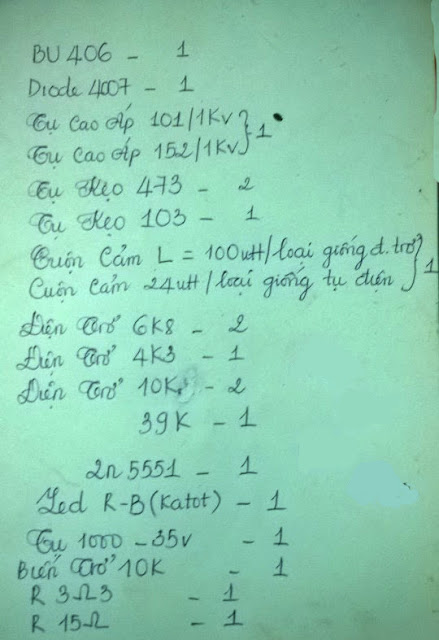 BU 406 - 1
Diode 4007 - 1
Tụ Cao Áp 101/1Kv } 1
Tụ Cao Áp 152/1Kv
Tụ Kẹo 473 - 2
Tụ Kẹo 103 - 1
Cuộn Cảm L = 100uH/loại giống đ.trở } 1
Cuộn Cảm 24uH/loại giống tụ điện
Điện Trở 6K8 - 2
Điện Trở 4K3 - 1
Điện Trở 10K - 2
39K - 1
2n 5551 - 1
Led R-B (Katot) - 1
Tụ 1000 - 35v - 1
Biến Trở 10K - 1
R 3Ω3 - 1
R 15Ω - 1